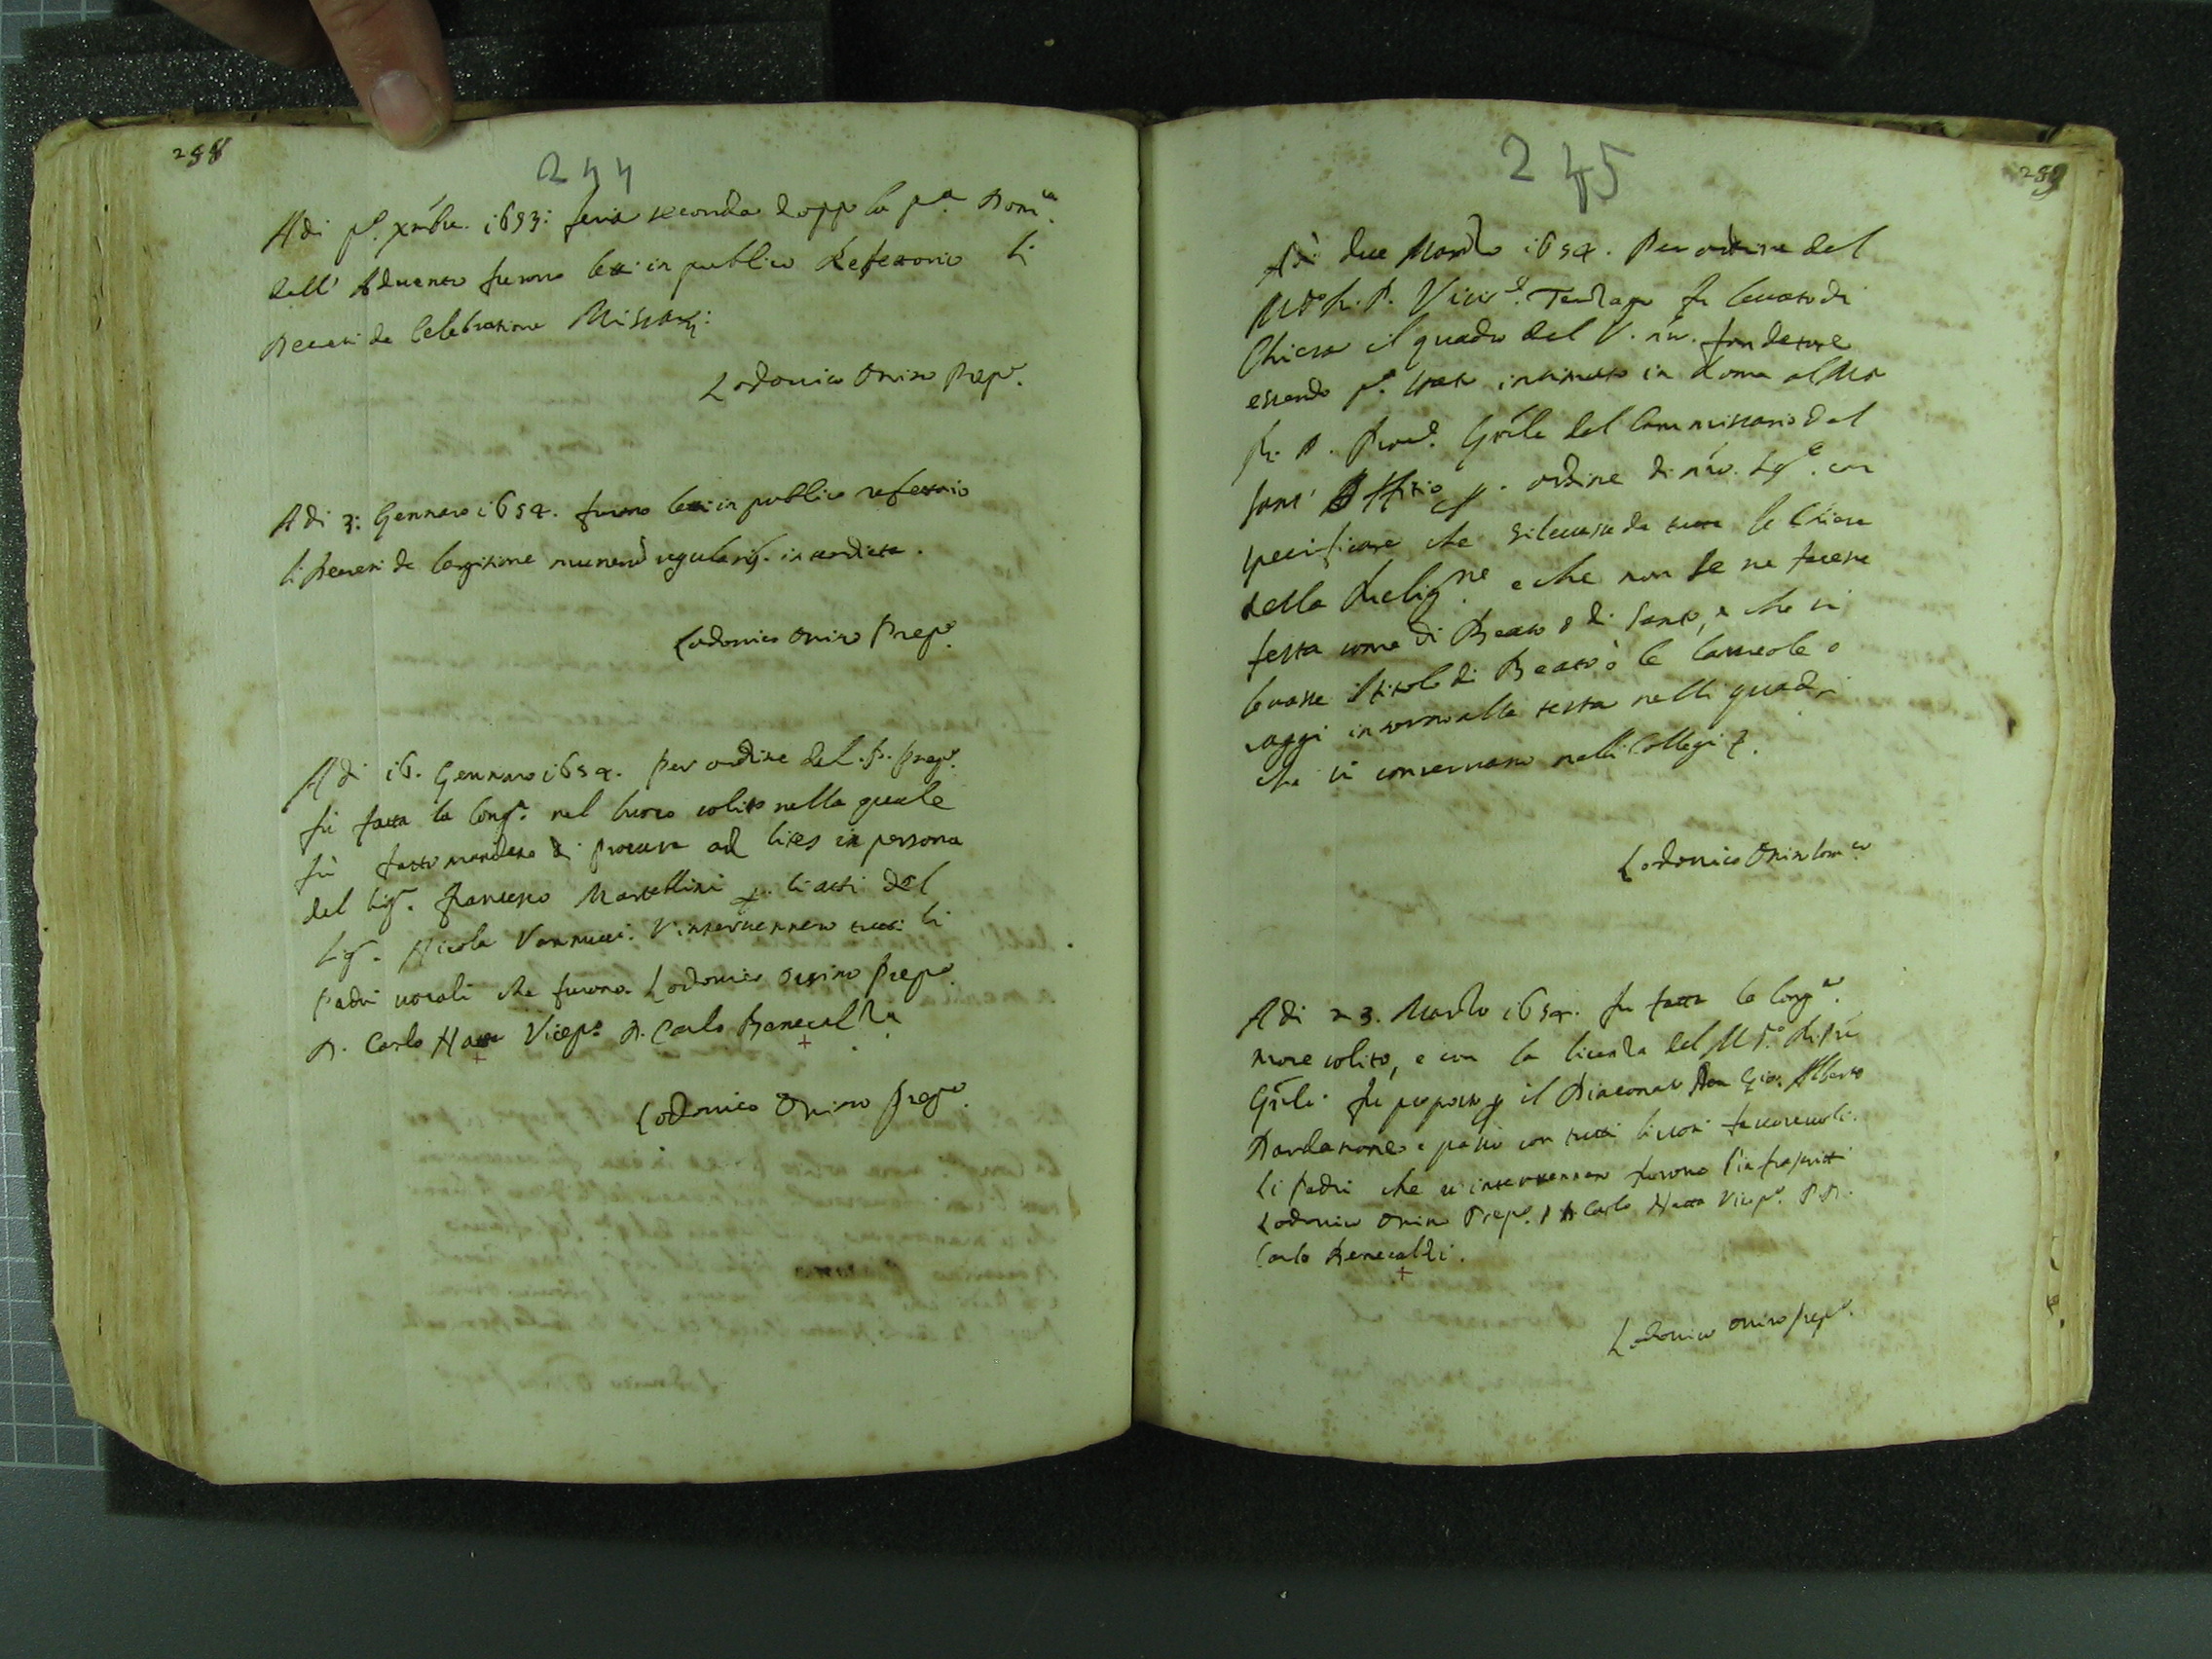 288
244
Adi p.º xmbre. 1653: feria seconda doppo la p.ª Dom.ca
dell' Aduento furono letti in publico Refettorio li
Decreti de Celebratione Missarū:
Lodouico Orsino Prep.º
Adi 3: Gennaro 1654. furono letti in publico refettorio
li Decreti de largitione munerū regularib. interdicta.
Lodouico Orsino Prep.º
Adi 16. Gennaro 1654. per ordine del P. Prep.º
fù fatta la Cong.ne nel luoco solito nella quale
fù fatto mandato di procura ad lites in persona
del Sig.r Francesco Marcellini p. li atti del
Sig.r Nicola Vannucci. V'interuennero tutti li
Padri uocali che furono Lodouico Orsino Prep.º
D. Carlo Natta Vicep.º D. Carlo Benecaldi
Lodouico Orsino Prep.º
289
245
Adì due Marzo 1654. Per ordine del
M.to R. P. Vis.re fu leuato di
Chiesa il quadro del V. nro. fondatore
essendo p.ª stato intimato in Roma al M.to
R. P. Proc.re Gñle dal Commissario del
Sant' Offitio p. ordine di nro. Sig.re con
specificare che si leuasse da tutte le Chiese
della Relig.ne e che non se ne facesse
festa come di Beato o di Santo, e che si
leuasse il titolo di Beato ò le laureole o
raggi intorno alla testa nelli quadri
che si conseruano nelli Collegi
Lodouico Orsin
Adi 23. Marzo 1654. fu fatta la Cong.ne
more solito, e con la licenza del M.to R. Pre
Gñle. fu proposto p il Diaconato Don Gio: Alberto
e passò con tutti li uoti fauoreuoli.
Li Padri che u' interuennero furono l'infrascritti
Lodouico Orsino Prep.º D. Carlo Natta Vicep.º P. D.
Carlo Benecaldi.
Lodouico Orsino Prep.º